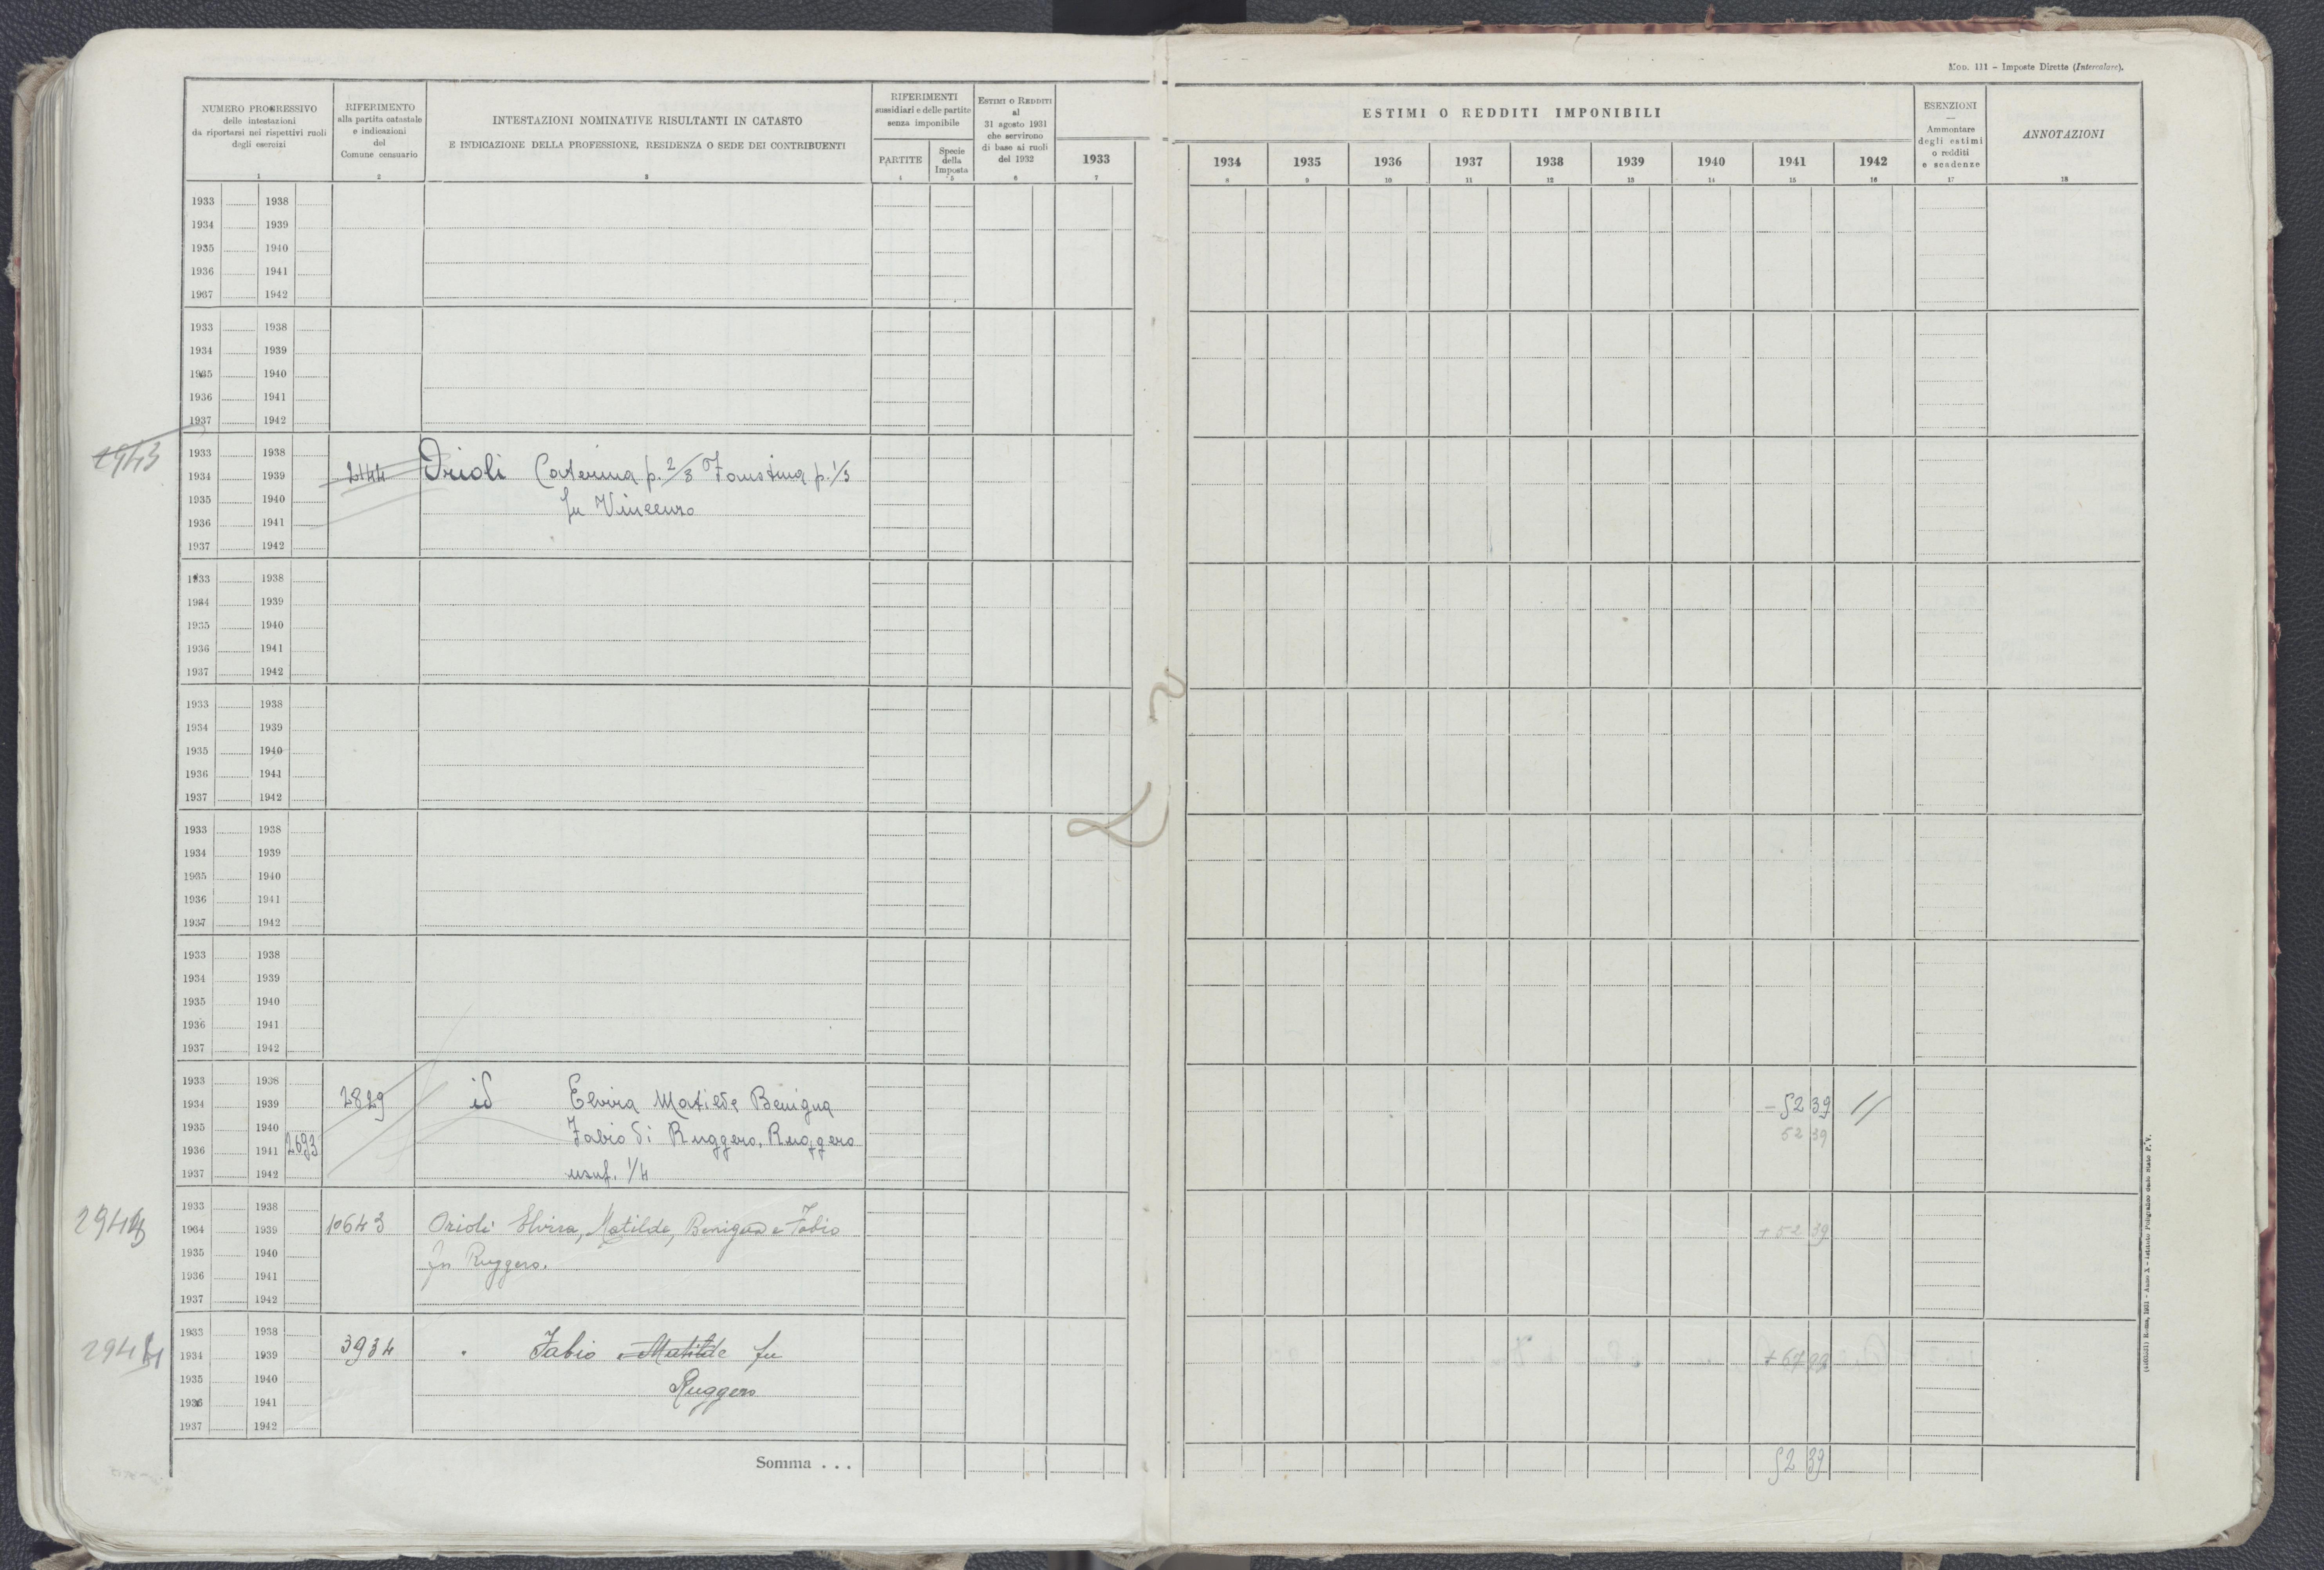 MOD. 111 – Imposte Dirette (Intercalare).
NUMERO PROGRESSIVO
delle intestazioni
da riportarsi nei rispettivi ruoli
degli esercizi
1
RIFERIMENTO
alla partita catastale
e indicazioni
del
Comune censuario
2
INTESTAZIONI NOMINATIVE RISULTANTI IN CATASTO
E INDICAZIONE DELLA PROFESSIONE, RESIDENZA O SEDE DEI CONTRIBUENTI
3
RIFERIMENTI
sussidiari e delle partite
senza imponibile
PARTITE
4
Specie
della
Imposta
5
ESTIMI O REDDITI
al
31 agosto 1931
che servirono
di base ai ruoli
del 1932
6
ESTIMI O REDDITI IMPONIBILI
1933 1934 1935 1936 1937 1938 1939 1940 1941 1942
7 8 9 10 11 12 13 14 15 16
ESENZIONI
—
Ammontare
degli estimi
o redditi
e scadenze
17
ANNOTAZIONI
18
1933 1938
1934 1939
1935 1940
1936 1941
1937 1942
1933 1938
1934 1939
1935 1940
1936 1941
1937 1942
2943
1933 1938
1934 1939 2144 Orioli Caterina p. 2/3 Faustina p. 1/3
1935 1940 fu Vincenzo
1936 1941
1937 1942
1933 1938
1934 1939
1935 1940
1936 1941
1937 1942
1933 1938
1934 1939
1935 1940
1936 1941
1937 1942
1933 1938
1934 1939
1935 1940
1936 1941
1937 1942
1933 1938
1934 1939
1935 1940
1936 1941
1937 1942
1933 1938
1934 1939 2829 id Elvira Matilde Benigna = 52 39 //
1935 1940 Fabio di Ruggero, Ruggero 52 39
1936 1941 2693
1937 1942 usuf. 1/4
1933 1938
1934 1939 10643 Orioli Elvira, Matilde, Benigna e Fabio + 52 39
1935 1940 fu Ruggero.
1936 1941
1937 1942
1933 1938
2944 1934 1939 3934 Fabio e Matilde fu
1935 1940 Ruggero
1936 1941
1937 1942
Somma . . . 52 39